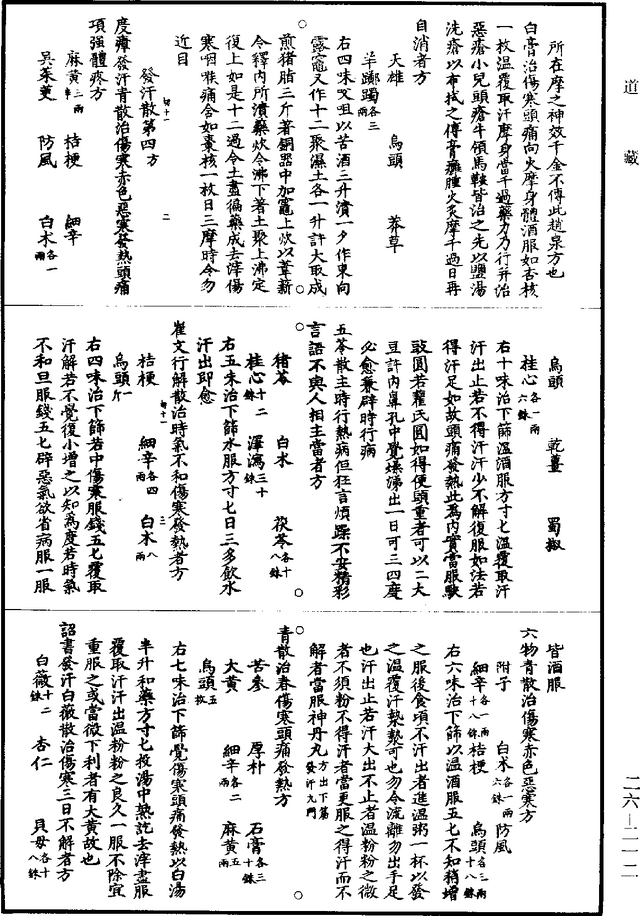 道藏
所在摩之神效千金不得此趙泉方也
白膏治傷寒頭痛向火摩身體酒服如杏核
一枚溫覆取汗摩身當千過藥力乃行并治
惡瘡小兒頭瘡牛領馬鞍皆治之先以鹽湯
洗瘡以布拭之傅膏癰腫火炙摩千過日再
自消者方
天雄 烏頭 莽草
羊躑躅各三兩
右四味㕮咀以苦酒三升漬一夕作東向
露竈又作十二聚濕土各一升許大取成
煎猪脂三斤著銅器中加竈上炊以葦薪
令釋內所漬藥炊令沸下著土聚上沸定
復上如是十二過令土盡徧藥成去滓傷
寒咽喉痛含如棗核一枚日三摩時令勿
近目
發汗散第四 方十一
度瘴發汗青散治傷寒赤色惡寒發熱頭痛
項强體疼方
麻黃三兩半 桔梗 細辛
吳茱萸 防風 白朮各一兩
烏頭 乾薑 蜀椒
桂心各一兩六銖
右十味治下篩溫酒服方寸匕溫覆取汗
汗出止若不得汗汗少不解復服如法若
得汗足如故頭痛發熱此為內實當服駃
豉圓若翟氏圓如得便頭重者可以二大
豆許內鼻孔中覺燥涕出一日可三四度
必愈兼辟時行病
五苓散主時行熱病但狂言煩躁不安精彩
言語不與人相主當者方
猪苓 白朮 茯苓各十八銖
桂心十二銖 澤瀉三十銖
右五末治下篩水服方寸匕日三多飲水
汗出即愈
崔文行解散治時氣不和傷寒發熱者方
桔梗 細辛各四兩 白朮八兩
烏頭一斤
右四味治下篩若中傷寒服錢五匕覆取
汗解若不覺復小增之以知為度若時氣
不和旦服錢五匕辟惡氣欲省病服一服
皆酒服
六物青散治傷寒赤色惡寒方
附子 白朮各一兩六銖 防風
細辛各一兩十八銖 桔梗 烏頭各三兩十八銖
右六味治下篩以溫酒服五匕不知稍增
之服後食頃不汗出者進溫粥一杯以發
之溫覆汗漐漐可也勿令流離勿出手足
也汗出止若汗大出不止者溫粉粉之微
者不須粉不得汗者當更服之得汗而不
解者當服神丹丸方出下篇發汗丸門
青散治春傷寒頭痛發熱方
苦參 厚朴 石膏各三十銖
大黃 細辛各二兩 麻黃五兩
烏頭五枚
右七味治下篩覺傷寒頭痛發熱以白湯
半升和藥方寸匕投湯中熟訖去滓盡服
覆取汗汗出溫粉粉之良久一服不除宜
重服之或當微下利者有大黃故也
詔書發汗白薇散治傷寒三日不解者方
白薇十二銖 杏仁 貝母各十八銖
二六—二一二